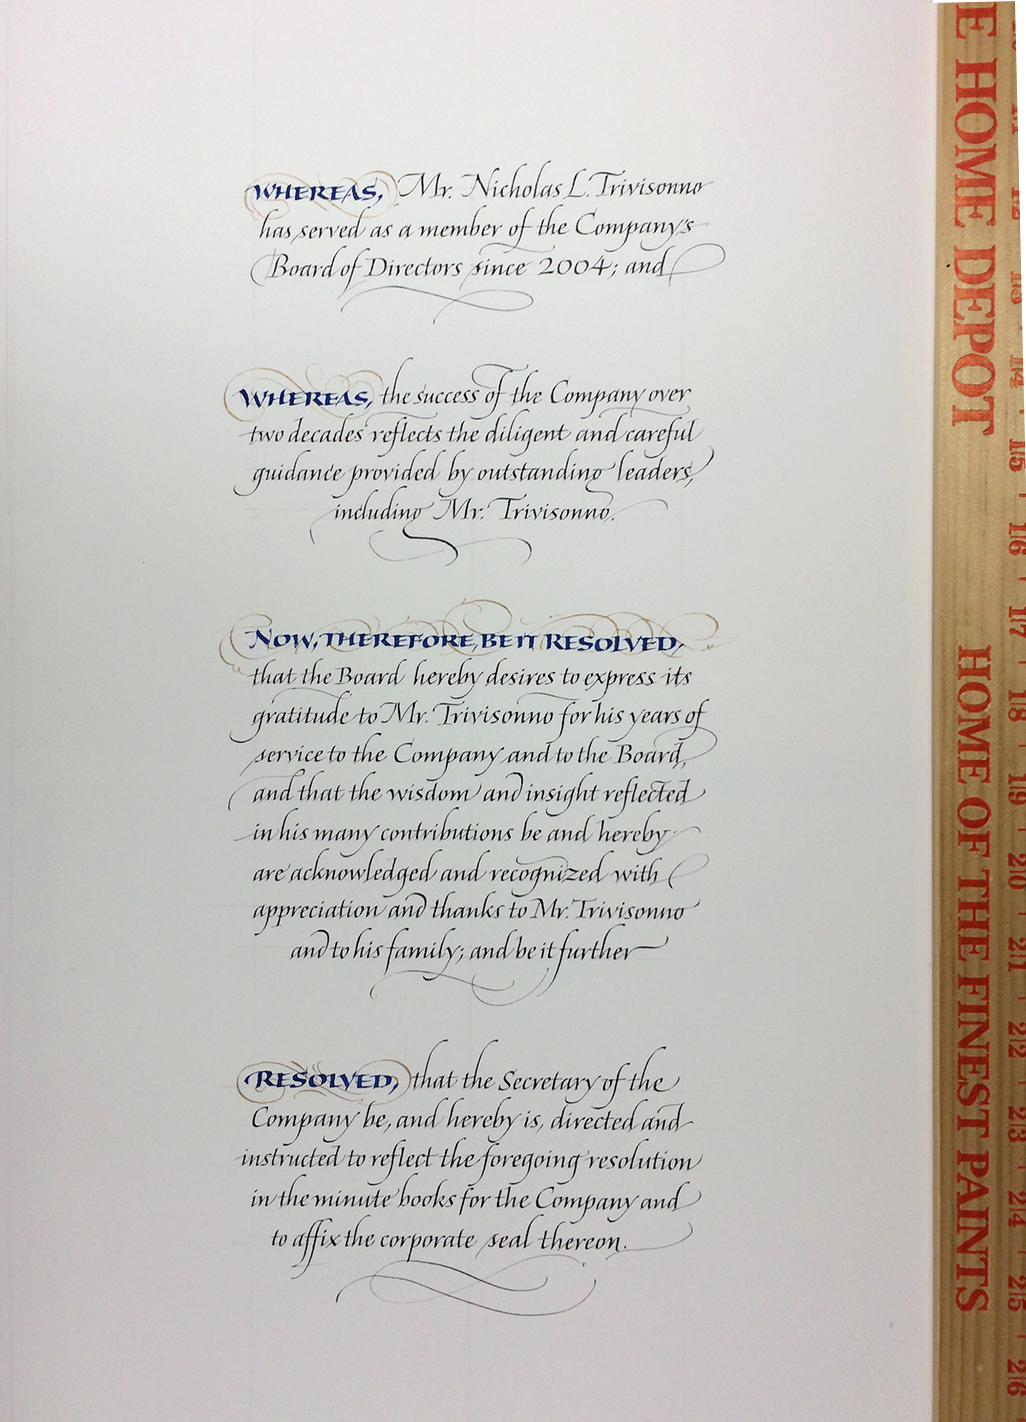 WHEREAS, Mr. Nicholas L. Trivisonno
has served as a member of the Company's
Board of Directors since 2004; and
WHEREAS, the success of the Company over
two decades reflects the diligent and careful
guidance provided by outstanding leaders,
including Mr. Trivisonno.
NOW, THEREFORE, BE IT RESOLVED,
that the Board hereby desires to express its
gratitude to Mr. Trivisonno for his years of
service to the Company and to the Board,
and that the wisdom and insight reflected
in his many contributions be and hereby
are acknowledged and recognized with
appreciation and thanks to Mr. Trivisonno
and to his family; and be it further
RESOLVED, that the Secretary of the
Company be, and hereby is, directed and
instructed to reflect the foregoing resolution
in the minute books for the Company and
to affix the corporate seal thereon.
E HOME DEPOT
HOME OF THE FINEST PAINTS
11
12
13
14
15
16
17
18
19
20
21
22
23
24
25
26